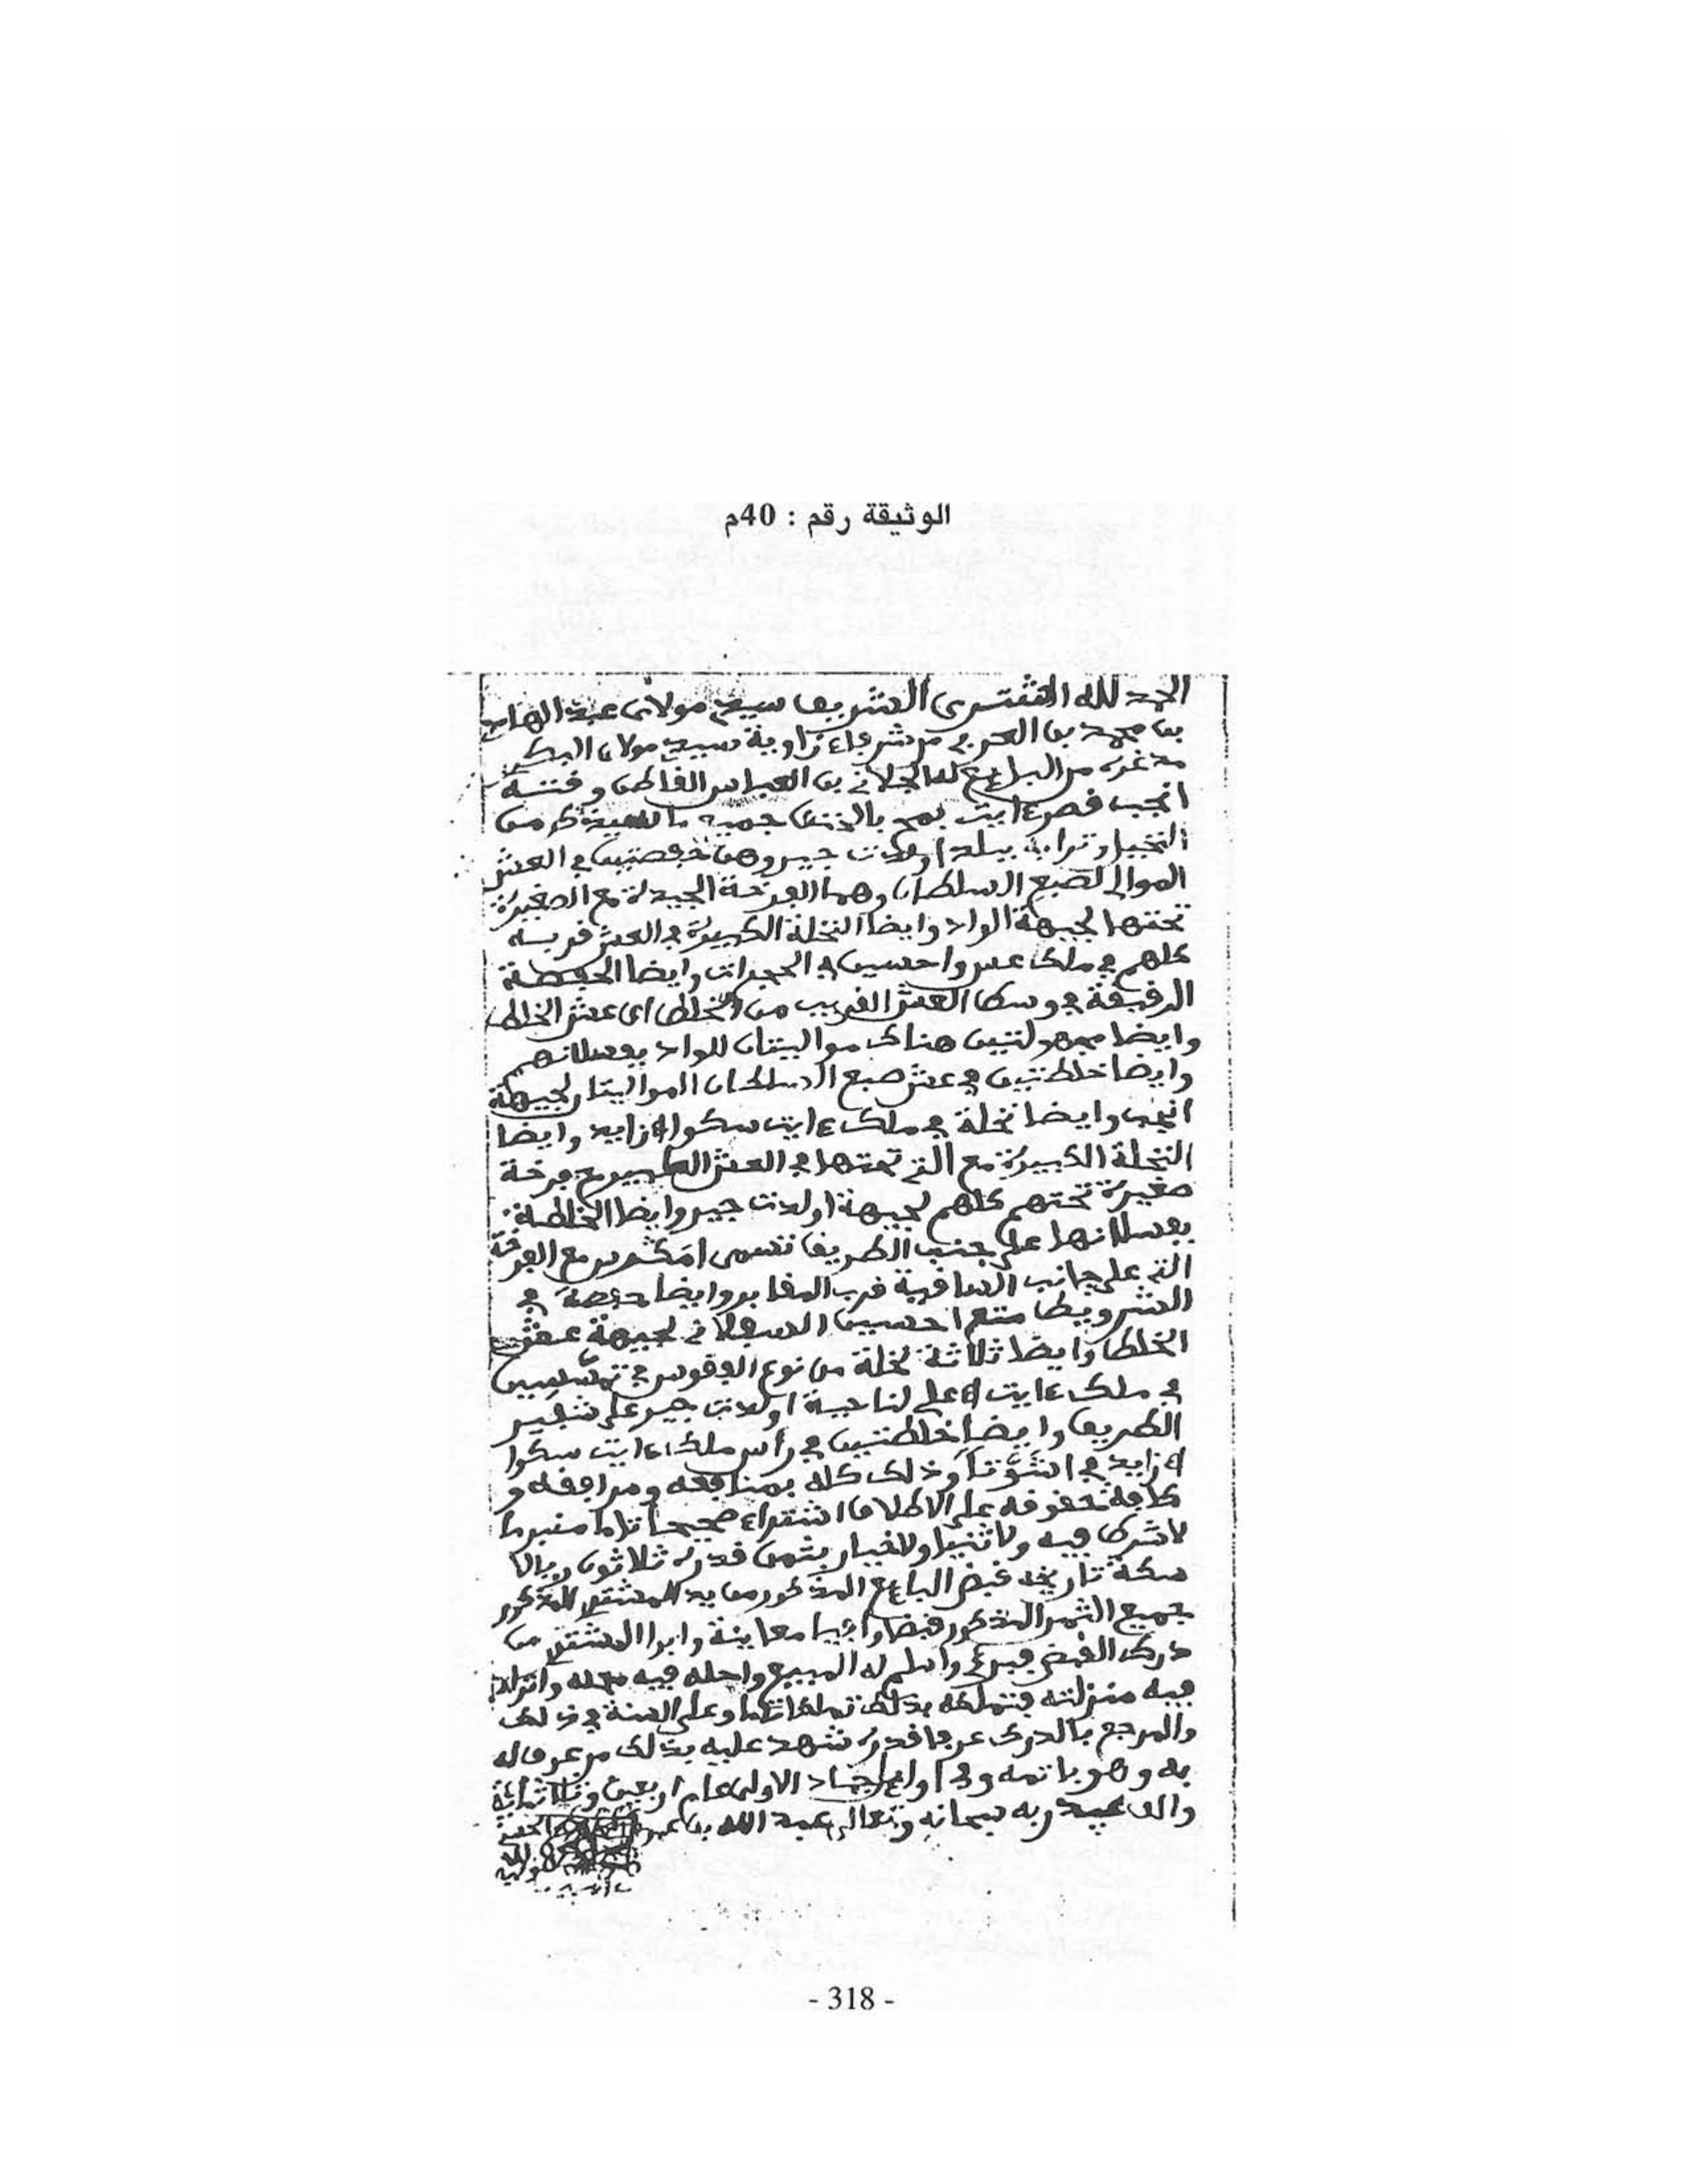 الوثيقة رقم : 40م
الحمد لله اشترى الشريف سيدي مولاي عبد الهادي
بن محمد بن العربي من شرفاء زاوية سيدي مولاي البكر
مدغرة من البائع له الجلاني بن العباس القاطن وقتئه
انجب قصر ءايت جميع ما من
النخيل وترابه ببلد اولادت جير وهن حفصتين في العش
الموالي لصبع السلطان وهما الفرخة الجيدلة مع الصغيرة
تحتها لجيهة الواد وايضا النخلة الكبيرة في العش قربه
كلهم في ملك عس واحسين في الحجرات وايضا الحفصة
الرقيقة في وسط العش القريب من الخلطي اي عش الخلط
وايضا مجهولتين هناك مواليتان للواد بفسلانهم
وايضا خلطتين في عش صبع السلطان المواليتان لجيهة
انجب وايضا نخلة في ملك ءايت سكوا ازايد وايضا
النخلة الكبيرة مع التي تحتها في العش الكبير مع فرخة
صغيرة تحتهم كلهم لجيهة اولادت جير وايضا الخلطة
بفسلانها على جنب الطريق تسمى مع الفرخة
التي على جانب الساقية قرب المقابر وايضا حفصة في
العش ويط متع احسين السفلاني لجيهة عش
الخلط وايضا ثلاثة نخلة من نوع الفقوس في
في ملك ءايت اعلي لناحية اولادت جير على شفير
الطريق وايضا خلطتين في رأس ملك ءايت سكوا
ازايد في وذلك كله بمنافعه ومرافقه و
كافة حقوقه على الاطلاق اشتراء صحيحا تاما منبرما
لا شرك فيه ولا ثنيا ولا خيار بثمن قدره ثلاثون ريالا
سكة تاريخه قبض البائع المذكور من يد المشتري المذكور
جميع الثمن المذكور قبضا وافيا معاينة وابرا المشتري من
درك القبض فبرئ واسلم له المبيع واحله فيه محله وانزله
فيه منزلته فتملكه بذلك تملكا تاما وعلى السنة في ذلك
والمرجع بالدرك عرفا قدره شهد عليه بذلك من عرفاله
به وهو باتمه وفي اوائل جماد الاولى عام اربعين وثلاثمائة
والف عبيد ربه سبحانه وتعالى عبد الله بن
- 318 -